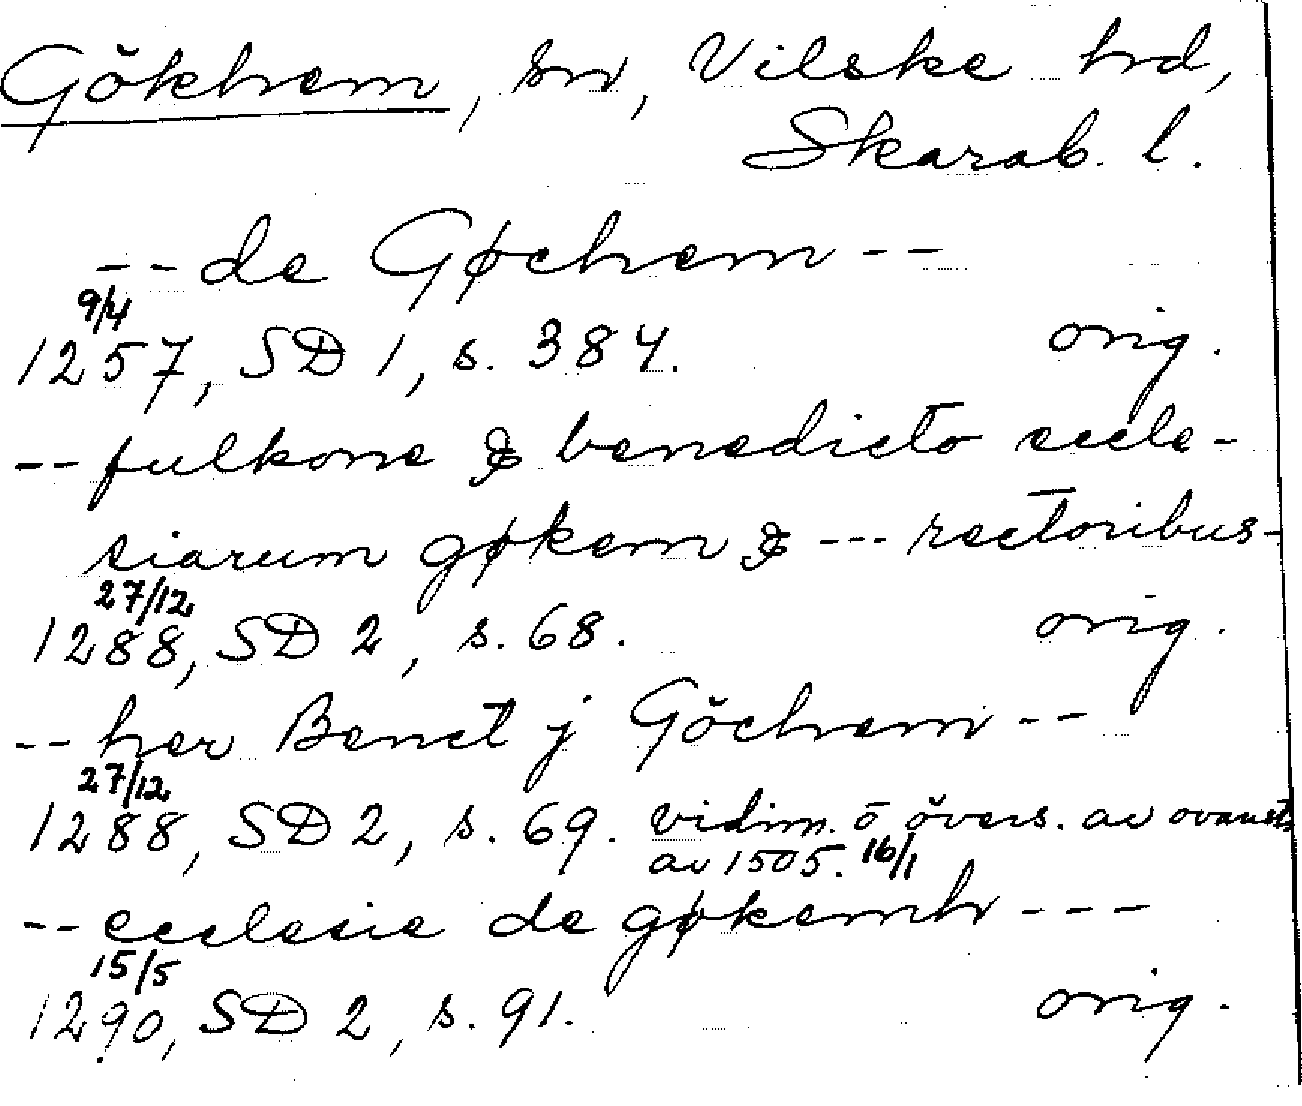 Gökhem, sn, Vilske hrd,
Skarab. l.
-- de Gøchem --
9/4
1257, SD 1, s. 384. orig.
-- fulkone & benedicto eccle-
siarum gøkem & --- rectoribus-
27/12
1288, SD 2, s. 68. orig.
-- her Benct j Göchem --
27/12
1288, SD 2, s. 69. vidim. o övers. av ovanst.
av 1505. 16/1
-- ecclesie de gøkemh ---
15/5
1290, SD 2, s. 91. orig.